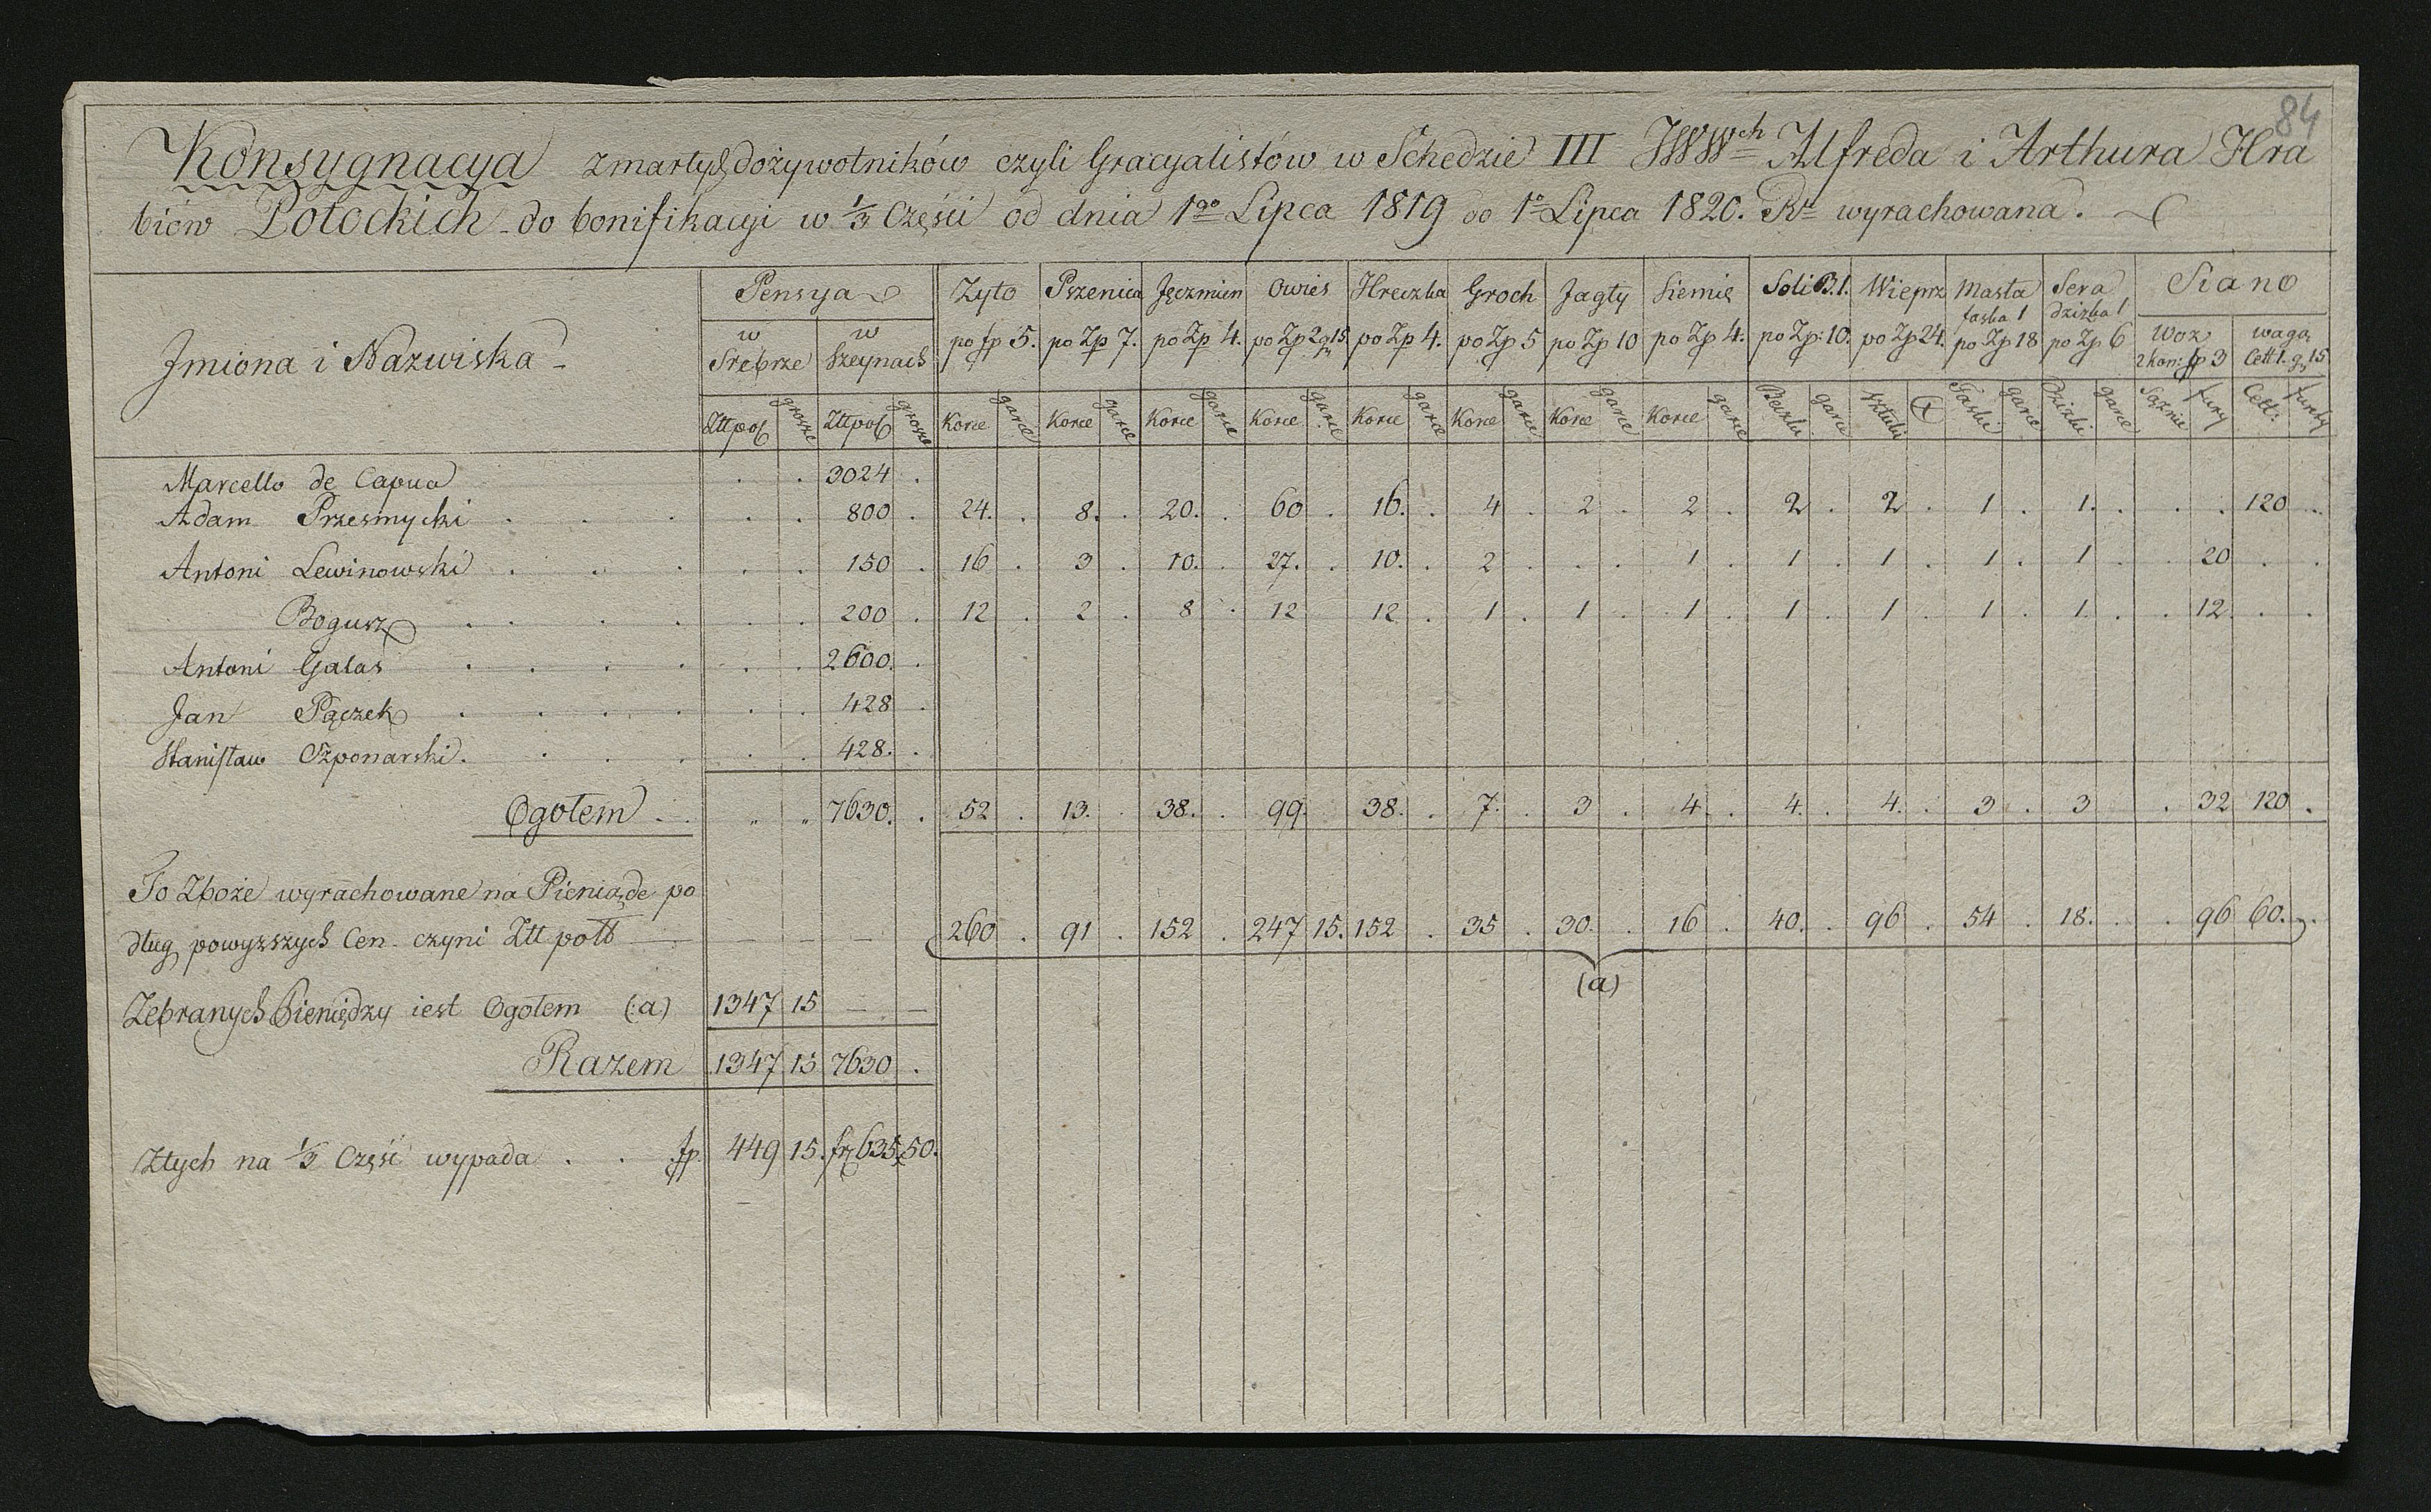 84
Konsygnacya zmarłych dożywotników czyli Gracyalistów w Schedzie III JWWch Alfreda i Arthura Hra
biów Potockich do bonifikacyi w 1/3 Części od dnia 1go Lipca 1819 do 1o Lipca 1820. Rs wyrachowana.
Jmiona i Nazwiska Pensya Zyto Pszenica Jęczmien Owies Hreczka Groch Jagły Siemie Soli B. 1. Wieprz Masła Sera Siano
faska 1 dziżka 1
w Srebrze w Szeynach po fp 5. po Zp 7. po Zp 4. po Zp 2 g 15 po Zp 4. po Zp 5 po Zp 10 po Zp 4. po Zp: 10. po Zp 24. po Zp 18 po Zp 6 Woz 2 kon: fp 3 waga Cett 1. g 15
Zttpol grosze Zttpol grosze Korce garce Korce garce Korce garce Korce garce Korce garce Korce garce Korce garce Korce garce Beczki garce sztuki Faski garce Dziżki garce Sążnie fury Cett: funty
Marcello de Capua . . 3024 .
Adam Przesmycki . . . . . 800 . 24. . 8. . 20. . 60 . 16. . 4 . 2 . 2 . 2 . 2 . 1 . 1. . . . 120 .
Antoni Lewinowski . . . . . 150 . 16 . 3 . 10. . 27. . 10. . 2 . . . 1 . 1 . 1 . 1 . 1 . . 20 . .
Bogusz . . . . . . 200 . 12 . 2 . 8 . 12 12 . 1 . 1 . 1 . 1 . 1 . 1 . 1. . . 12. . .
Antoni Galas . . . . . . 2600. .
Jan Pączek . . . . . . 428 .
Stanisław Szponarski. . . . . . 428. .
Ogołem . . " " 7630. . 52 . 13. . 38. . 99. 38. . 7. . 3 . 4. . 4. . 4. . 3 . 3 . 32 120 .
To Zboże wyrachowane na Pieniąde po
dług powyzszych Cen czyni Ztt pols — — — — 260 . 91 . 152 . 247 15. 152 . 35 . 30. . 16 . 40. . 96 . 54 . 18. . . 96 60. .
(a)
Zebranych Pieniędzy iest Ogołem (:a) 1347 15 — —
Razem 1347 15 7630 .
Ztych na 1/3 Część wypada . . fp. 449 15. fr 635 50.